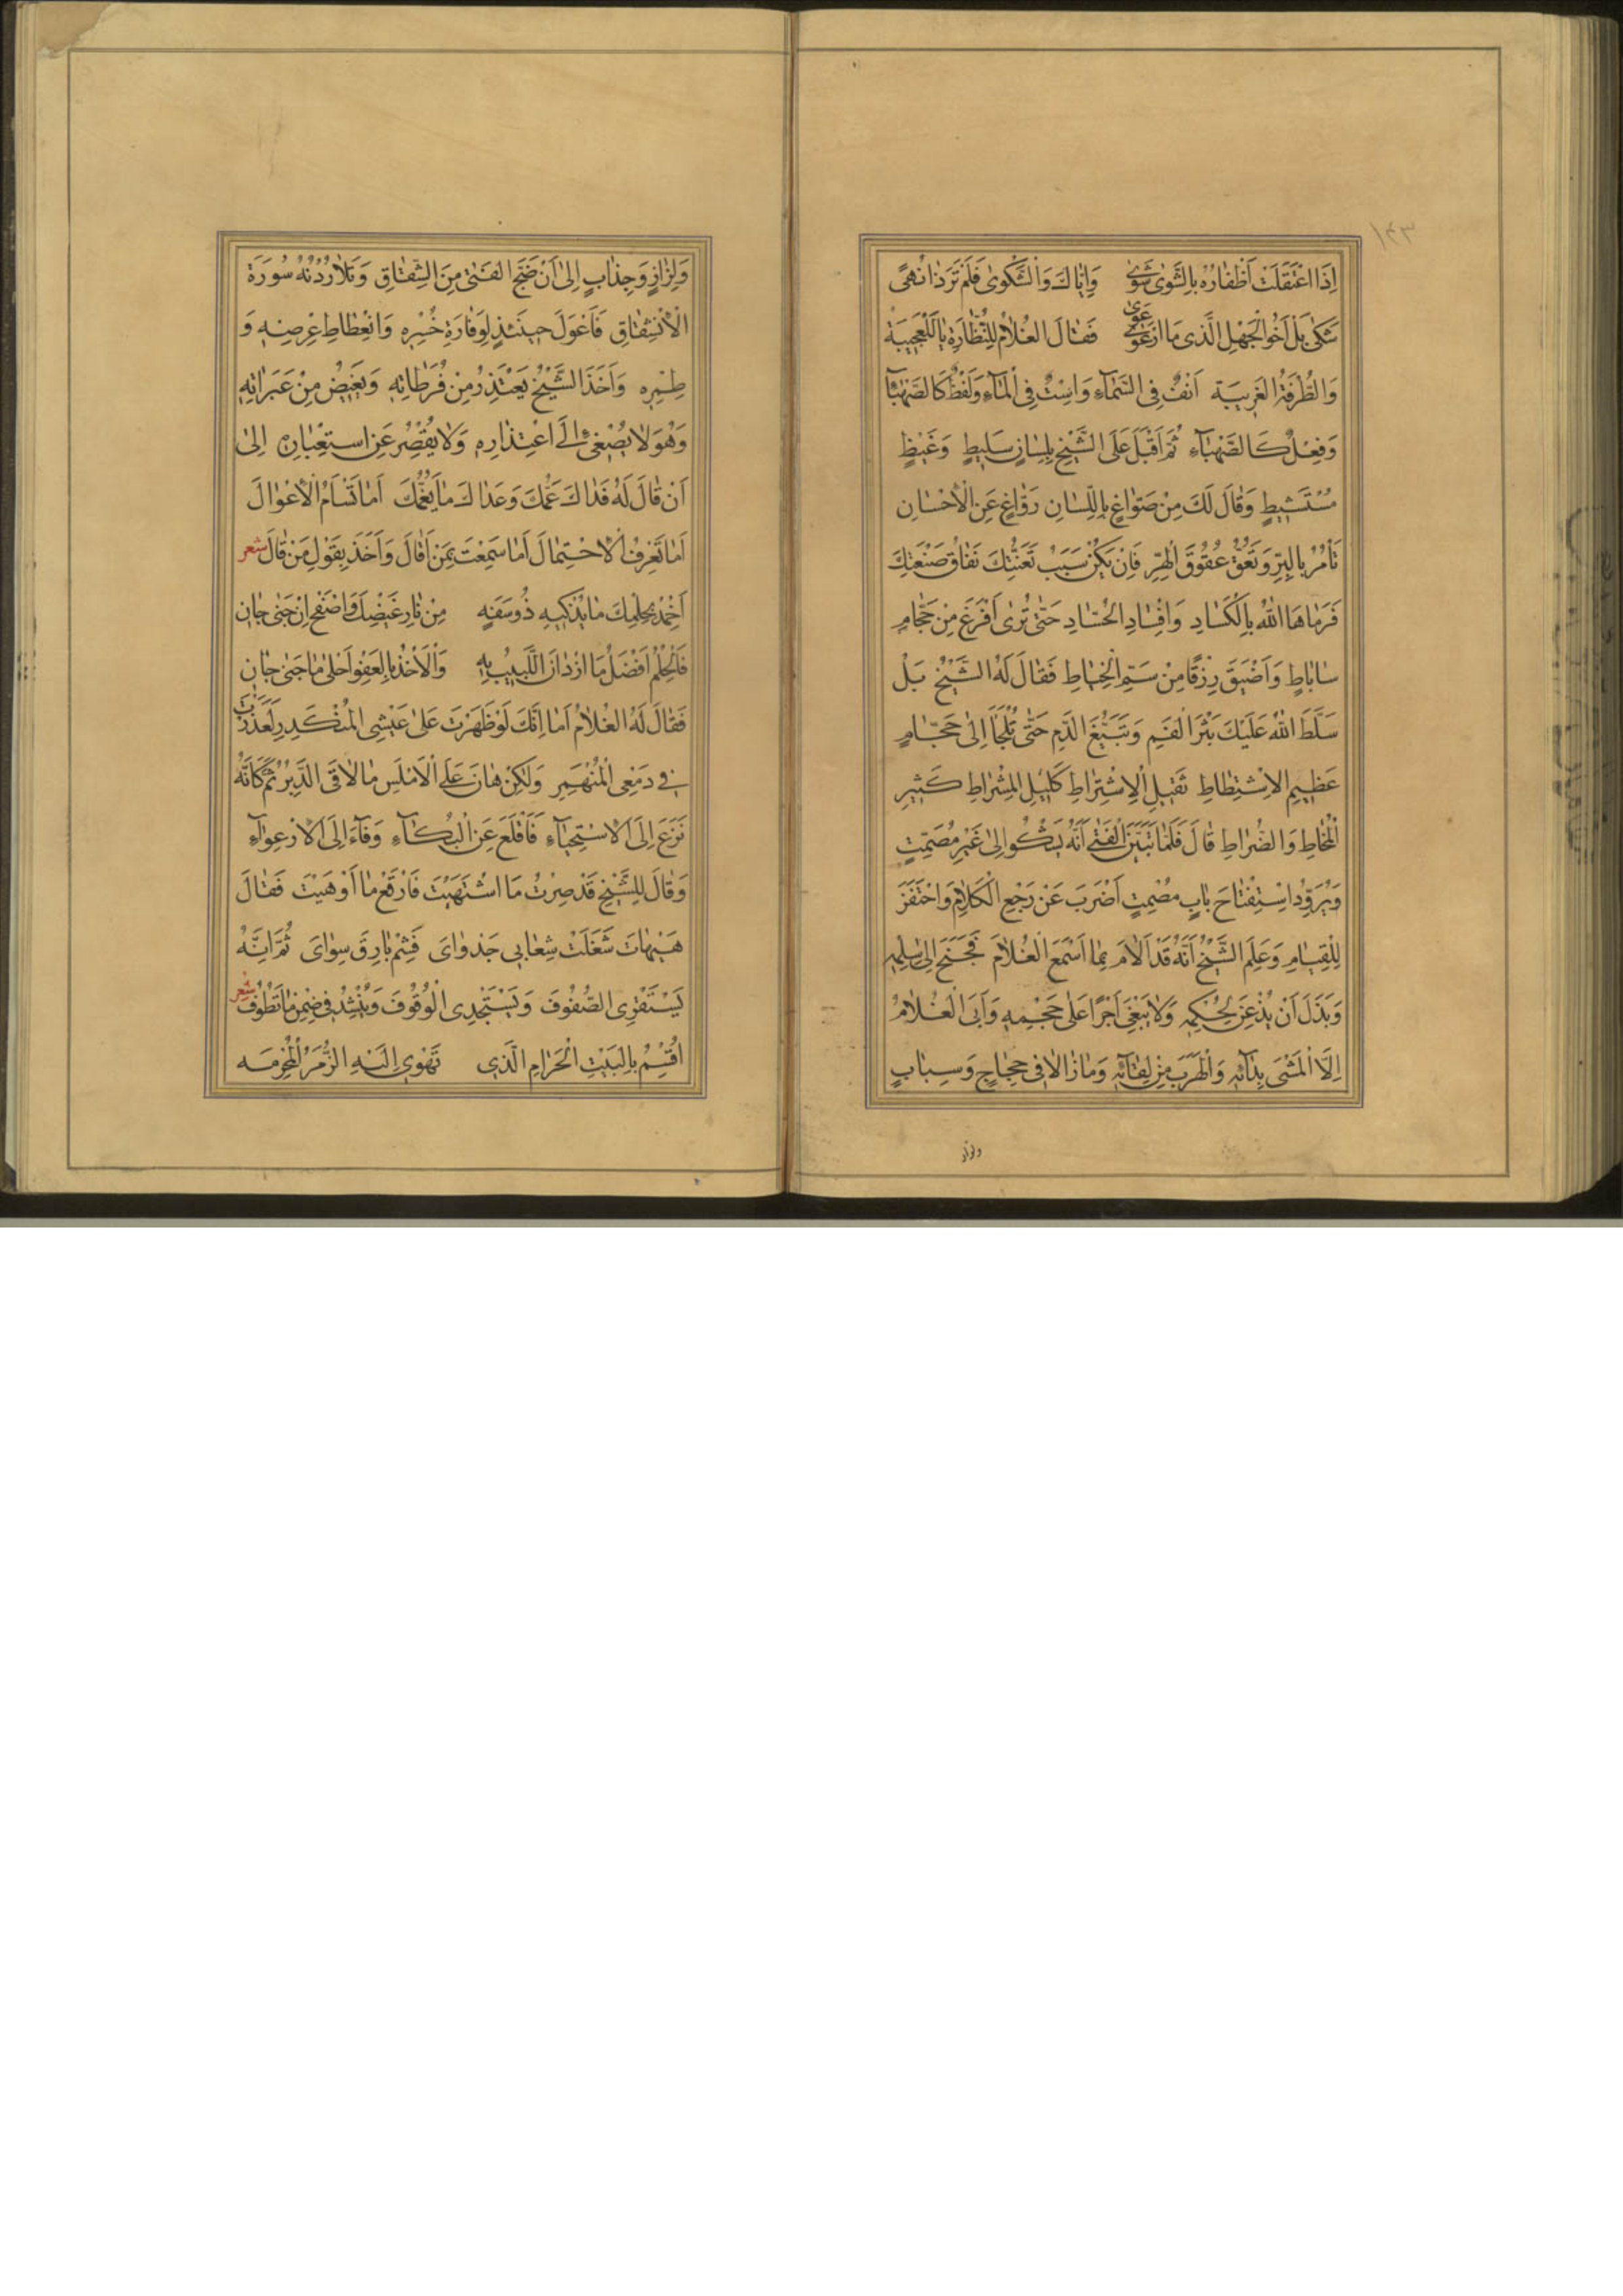 ١٤٣
اِذَا اعْتَقَلَتْ اَظْفَارُهُ بِالشَّوٰى شَوٰى وَاِيَّاكَ وَالشَّكْوٰى فَلَمْ تَرَ ذَا نُهًى
شَكٰى بَلْ اَخُو الْجَهْلِ الَّذِى مَا ارْعَوٰى عَوٰى فَقَالَ الْغُلَامُ لِلنَّظَّارَةِ يَا لَلْعَجِيبَةِ
وَالطُّرْفَةِ الْغَرِيبَةِ اَنْفٌ فِى السَّمَآءِ وَاسْتٌ فِى الْمَآءِ وَلَفْظٌ كَالصَّهْبَآءِ
وَفِعْلٌ كَالصَّهْبَآءِ ثُمَّ اَقْبَلَ عَلَى الشَّيْخِ بِلِسَانٍ سَلِيطٍ وَغَيْظٍ
مُسْتَشِيطٍ وَقَالَ لَكَ مِنْ صَوَّاغٍ بِاللِّسَانِ رَوَّاغٍ عَنِ الْاِحْسَانِ
تَأْمُرُ بِالْبِرِّ وَتَعُقُّ عُقُوقَ الْهِرِّ فَاِنْ يَكُنْ سَبَبُ تَعَنُّتِكَ نَفَاقُ صَنْعَتِكَ
فَرَمَاهَا اللّٰهُ بِالْكَسَادِ وَاِفْسَادِ الْحُسَّادِ حَتّٰى تُرٰى اَفْرَغَ مِنْ حَجَّامِ
سَابَاطٍ وَاَضْيَقَ رِزْقًا مِنْ سَمِّ الْخِيَاطِ فَقَالَ لَهُ الشَّيْخُ بَلْ
سَلَّطَ اللّٰهُ عَلَيْكَ بَثْرَ الْفَمِ وَتَبَيُّغَ الدَّمِ حَتّٰى تُلْجَأَ اِلٰى حَجَّامٍ
عَظِيمِ الْاِشْتِطَاطِ ثَقِيلِ الْاِشْتِرَاطِ كَلِيلِ الْمِشْرَاطِ كَثِيرِ
الْمُخَاطِ وَالضُّرَاطِ قَالَ فَلَمَّا تَبَيَّنَ الْفَتٰى اَنَّهُ يَشْكُو اِلٰى غَيْرِ مُصَمِّتٍ
وَيُرَاوِدُ اسْتِفْتَاحَ بَابٍ مُصْمَتٍ اَضْرَبَ عَنْ رَجْعِ الْكَلَامِ وَاحْتَفَزَ
لِلْقِيَامِ وَعَلِمَ الشَّيْخُ اَنَّهُ قَدْ اَلَامَ بِمَا اَسْمَعَ الْغُلَامَ فَجَنَحَ اِلٰى سِلْمِهِ
وَبَذَلَ اَنْ يُذْعِنَ لِحُكْمِهِ وَلَا يَبْغِىَ اَجْرًا عَلٰى حَجْمِهِ وَاَبَى الْغُلَامُ
اِلَّا الْمَشْىَ بِدَآئِهِ وَالْهَرَبَ مِنْ لِقَآئِهِ وَمَا زَالَا فِى حِجَاجٍ وَسِبَابٍ
ولزاز
وَلِزَازٍ وَجِذَابٍ اِلٰى اَنْ ضَجَّ الْفَتٰى مِنَ الشِّقَاقِ وَتَلَا رُدْنُهُ سُورَةَ
الْاِنْشِقَاقِ فَاَعْوَلَ حِينَئِذٍ لِوَفَارَةِ خُسْرِهِ وَانْعِطَاطِ عِرْضِهِ وَ
طِمْرِهِ وَاَخَذَ الشَّيْخُ يَعْتَذِرُ مِنْ فُرَطَاتِهِ وَيُغَيِّضُ مِنْ عَبَرَاتِهِ
وَهُوَ لَا يُصْغِى اِلَى اعْتِذَارِهِ وَلَا يُقْصِرُ عَنِ اسْتِعْبَارِهِ اِلٰى
اَنْ قَالَ لَهُ فَدَاكَ عَمُّكَ وَعَدَاكَ مَا يَغُمُّكَ اَمَا تَسْأَمُ الْاِعْوَالَ
اَمَا تَعْرِفُ الْاِحْتِمَالَ اَمَا سَمِعْتَ بِمَنْ اَقَالَ وَاَخَذَ بِقَوْلِ مَنْ قَالَ شعر
اَخْمِدْ بِحِلْمِكَ مَا يُذْكِيهِ ذُو سَفَهٍ مِنْ نَارِ غَيْضِكَ وَاصْفَحْ اِنْ جَنٰى جَانٍ
فَالْحِلْمُ اَفْضَلُ مَا ازْدَانَ اللَّبِيبُ بِهِ وَالْاَخْذُ بِالْعَفْوِ اَحْلٰى مَا جَنٰى جَانٍ
فَقَالَ لَهُ الْغُلَامُ اَمَا اِنَّكَ لَوْ ظَهَرْتَ عَلٰى عَيْشِى الْمُنْكَدِرِ لَعَذَرْتَ
فِى دَمْعِى الْمُنْهَمِرِ وَلٰكِنْ هَانَ عَلَى الْاَمْلَسِ مَا لَاقَى الدَّبِرُ ثُمَّ كَاَنَّهُ
نَزَعَ اِلَى الْاِسْتِحْيَآءِ فَاَقْلَعَ عَنِ الْبُكَآءِ وَفَآءَ اِلَى الْاِرْعِوَآءِ
وَقَالَ لِلشَّيْخِ قَدْ صِرْتُ مَا اشْتَهَيْتَ فَارْقَعْ مَا اَوْهَيْتَ فَقَالَ
هَيْهَاتَ شَغَلَتْ شِعَابِى جَدْوَاىَ فَشِمْ بَارِقَ سِوَاىَ ثُمَّ اِنَّهُ
يَسْتَقْرِى الصُّفُوفَ وَيَسْتَجْدِى الْوُقُوفَ وَيُنْشِدُ فِى ضِمْنِ مَا يَطُوفُ شعر
اُقْسِمُ بِالْبَيْتِ الْحَرَامِ الَّذِى تَهْوِى اِلَيْهِ الزُّمَرُ الْمُحْرِمَه